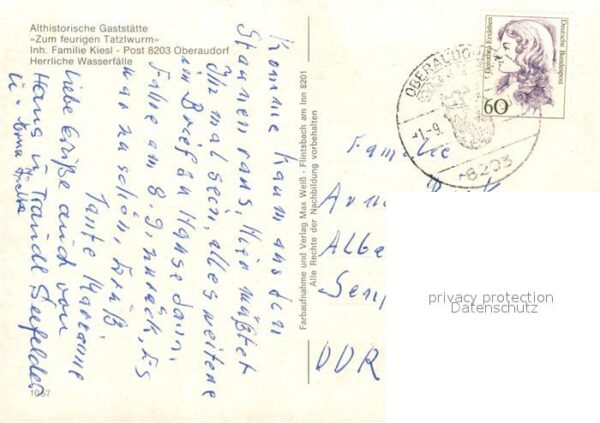 Althistorische Gaststätte
»Zum feurigen Tatzlwurm«
Inh. Familie Kiesl - Post 8203 Oberaudorf
Herrliche Wasserfälle
Komme kaum aus den
Staunen raus, Hier müßtet
Ihr mal sein, alles weitere
im Brief zu Hause dann.
Fahre am 8.9. zurück, Es
war zu schön, Gruß
Tante Marianne
Liebe Grüße auch von
Hans u. Traudl Seefelder
u.
10/67
Farbaufnahme und Verlag Max Weiß - Flintsbach am Inn 8201
Alle Rechte der Nachbildung vorbehalten
OBERAUDO
-1.-9.
8203
Dorothea Erxleben
Deutsche Bundespost
60
Familie
DDR
privacy protection
Datenschutz